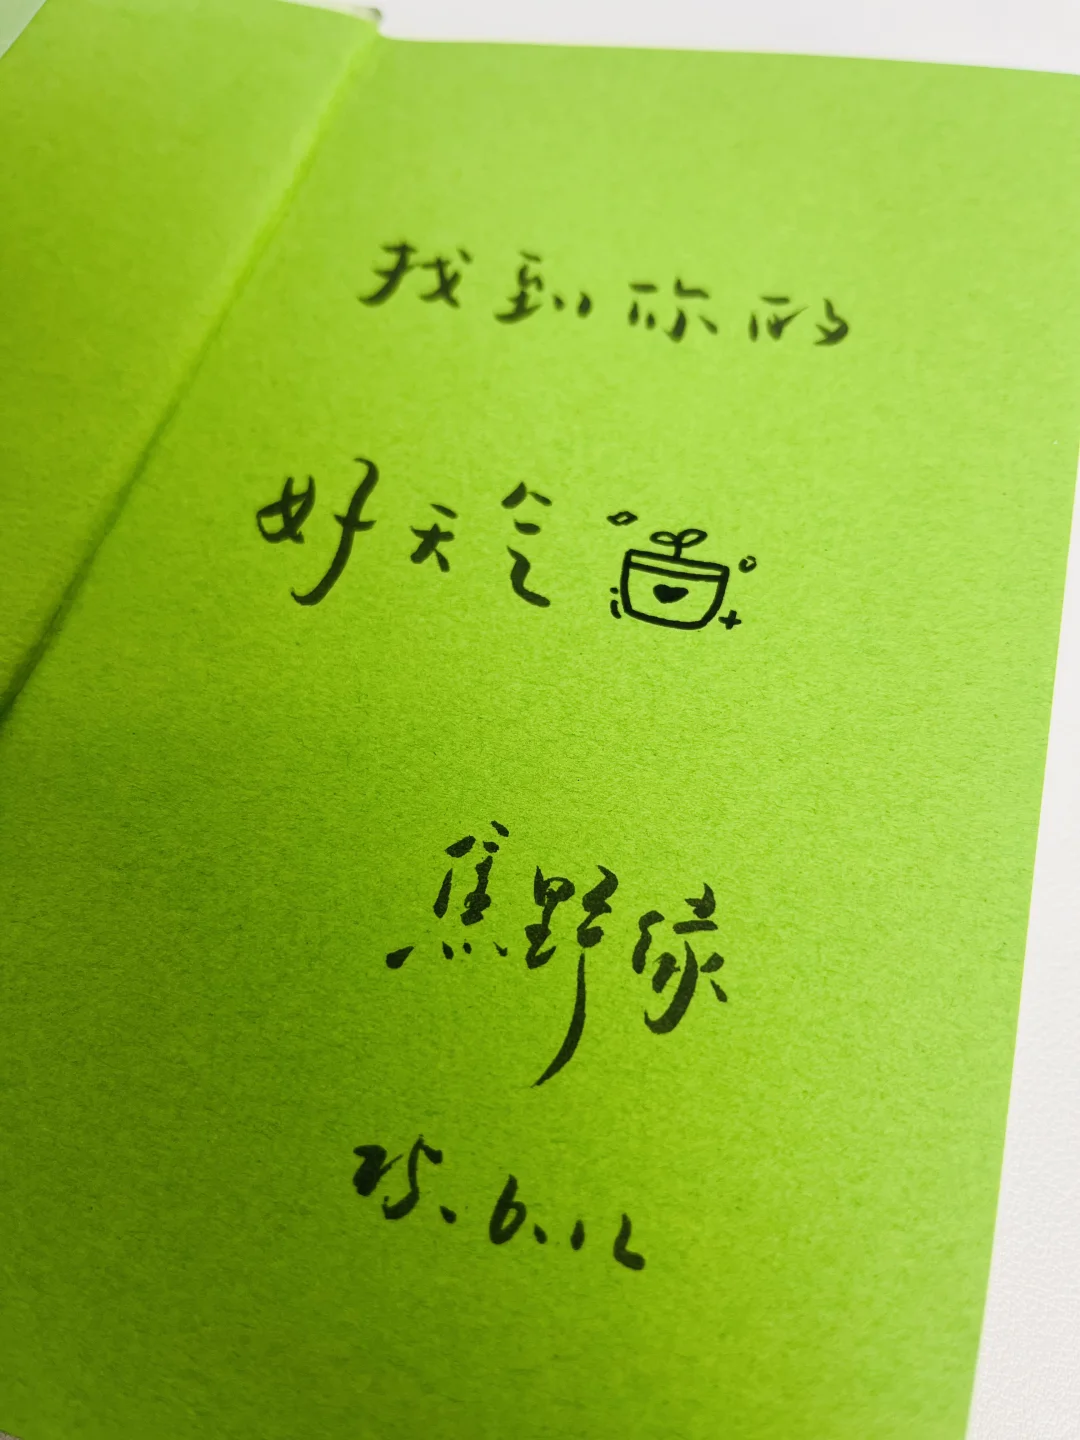 找到你的
好天气
焦野绿
25.6.12